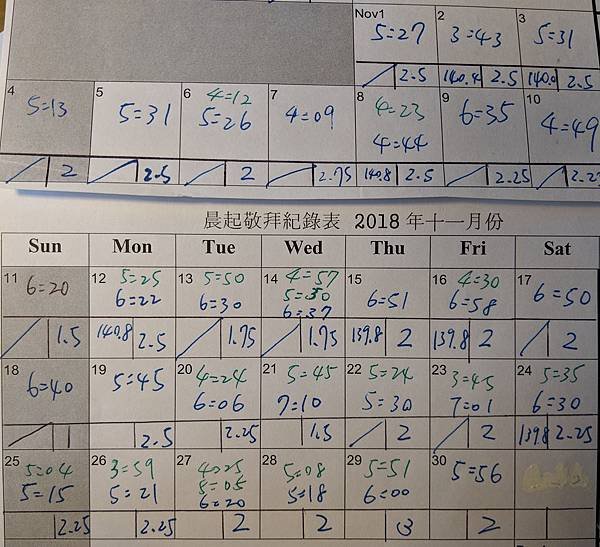 Nov1 2 3
5=27 3=43 5=31
2.5 140.4 2.5 140.0 2.5
4 5 6 7 8 9 10
4=12 4=23
5=13 5=31 5=26 4=09 4=44 6=35 4=49
2 2.5 2 2.75 140.8 2.5 2.25
晨起敬拜紀錄表 2018年十一月份
Sun Mon Tue Wed Thu Fri Sat
11 12 13 14 15 16 17
5=25 5=50 4=57 4=30
5=50
6=20 6=22 6=30 6=37 6=51 6=58 6=50
1.5 140.8 2.5 1.75 1.75 139.8 2 139.8 2 2
18 19 20 21 22 23 24
4=24 5=45 5=24 3=45 5=35
6=40 5=45 6=06 7=10 5=30 7=01 6=30
1 2.5 2.25 1.5 2 2 139.8 2.25
25 26 27 28 29 30
5=04 3=59 4=05 5=08 5=51
5=05
5=15 5=21 6=20 5=18 6=00 5=56
2.25 2.25 2 2 3 2